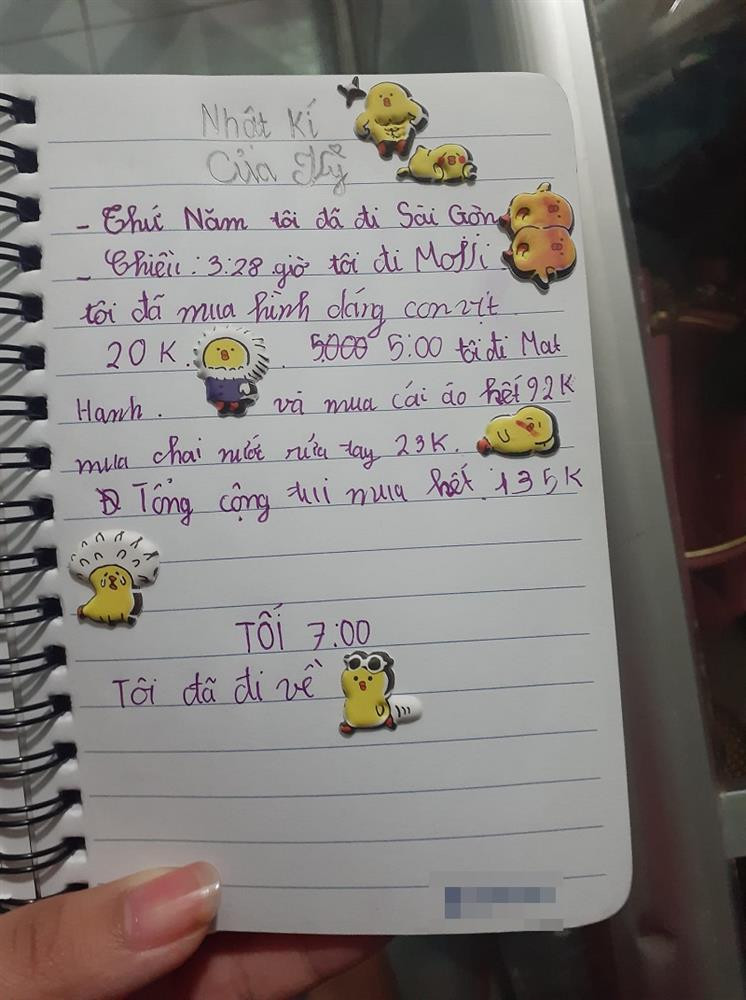 Nhật kí
Của Kỹ
- Thứ Năm tôi đã đi Sài Gòn
- Chiều: 3:28 giờ tôi đi Moffi
tôi đã mua hình dáng con vịt
20K. 5000 5:00 tôi đi Mat
Hanh. và mua cái áo hết 92K
mua chai nước rửa tay 23K.
Đ Tổng cộng tui mua hết 135K
TỐI 7:00
Tôi đã đi về